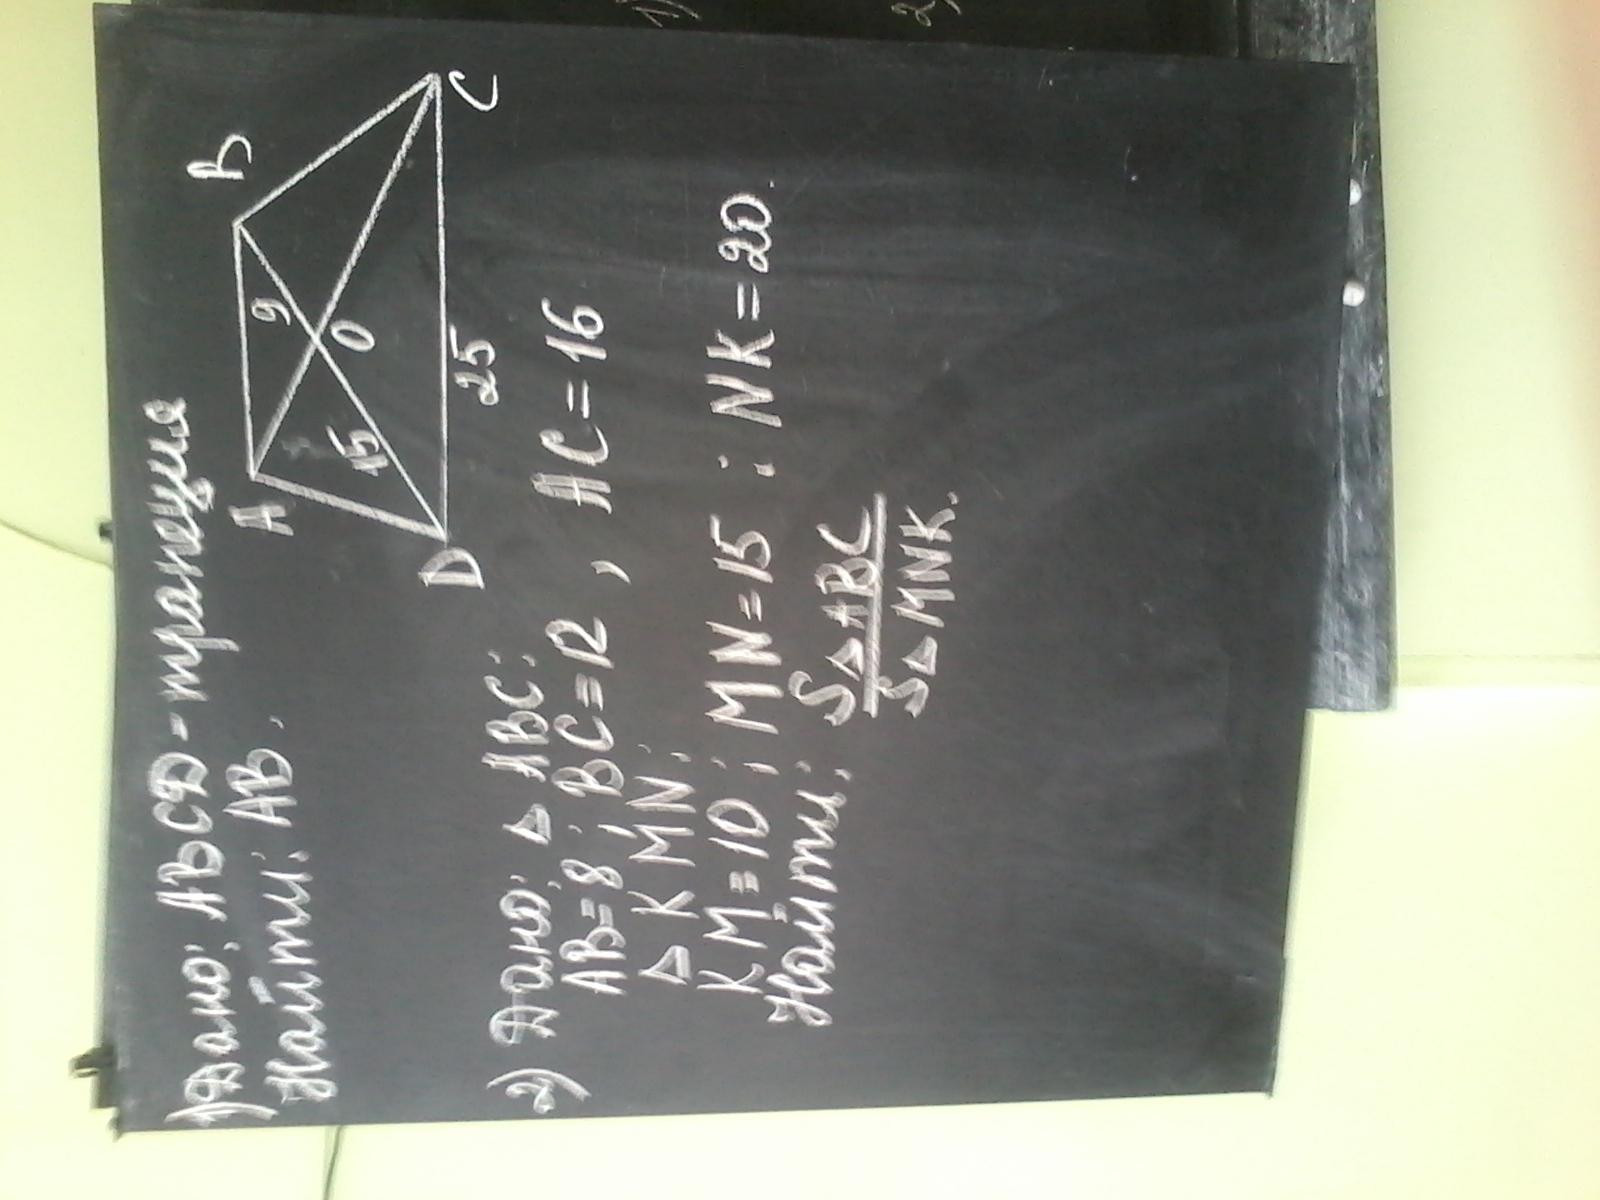 1) Дано: ABCD - трапеция
Найти: AB.
A
B
9
O
15
D
25
C
2) Дано: △ ABC:
AB = 8; BC = 12, AC = 16
△ KMN:
KM = 10; MN = 15; NK = 20.
Найти: S△ABC
S△MNK.
1)
2)